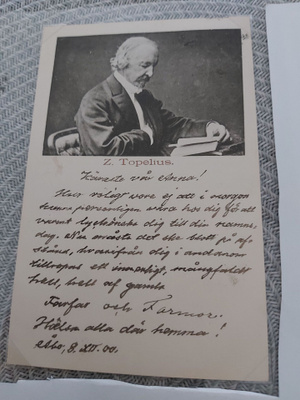 Z. Topelius.
Käraste vår Anna!
Hur roligt vore ej att i morgon
kunna personligen vara hos dig få att
varmt lyckönska dig till din namns-
dag. Nu måste det ske blott på af-
stånd, hvarifrån dig i andanom
tillropas ett innerligt, mångfaldigt
hell, hell af gamla
Farfar och Farmor.
Hälsa alla där hemma!
Åbo, 8. XII. 00.